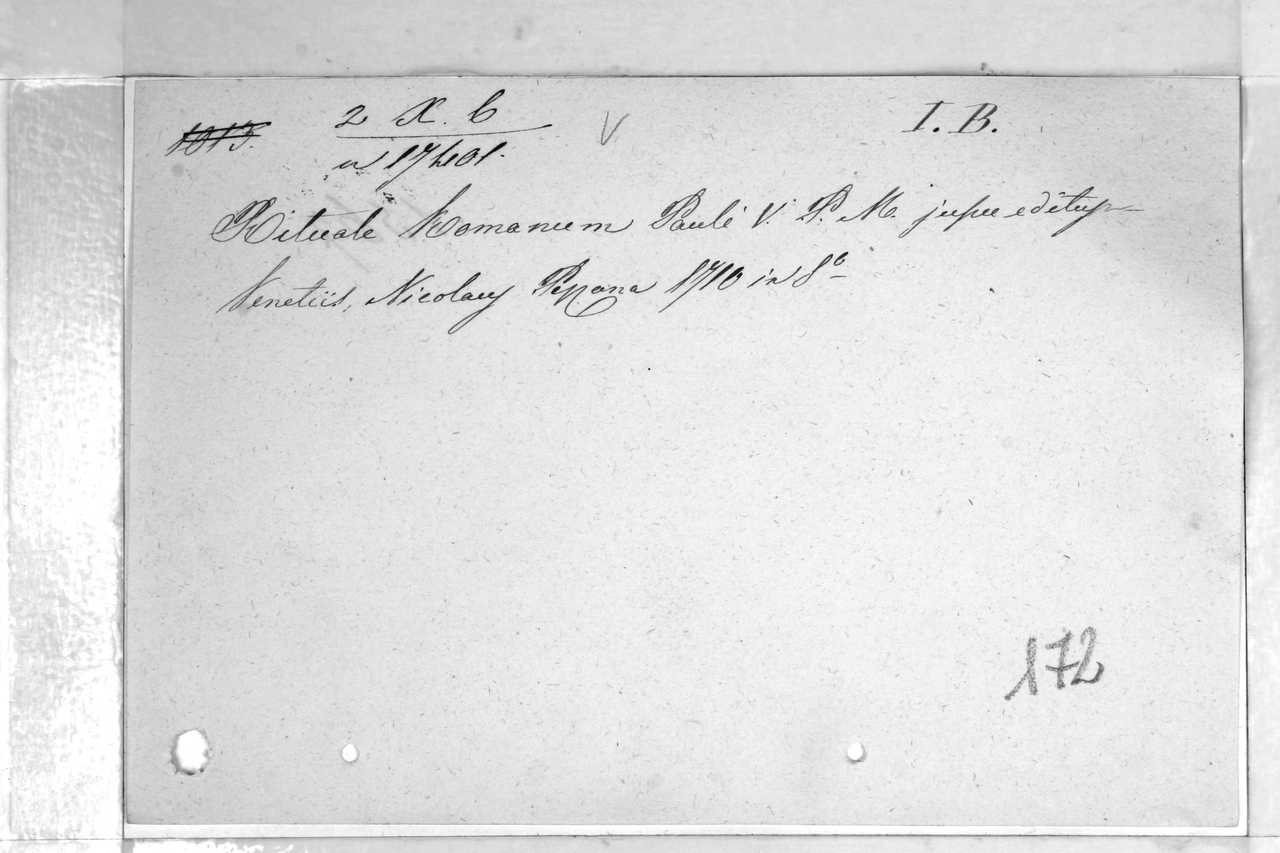 1013. 2 X. 6 V I. B.
17401.
Rituale Romanum Pauli V. P. M. jussu editum
Venetiis, Nicolaus Pezzana 1710 in 8º
172